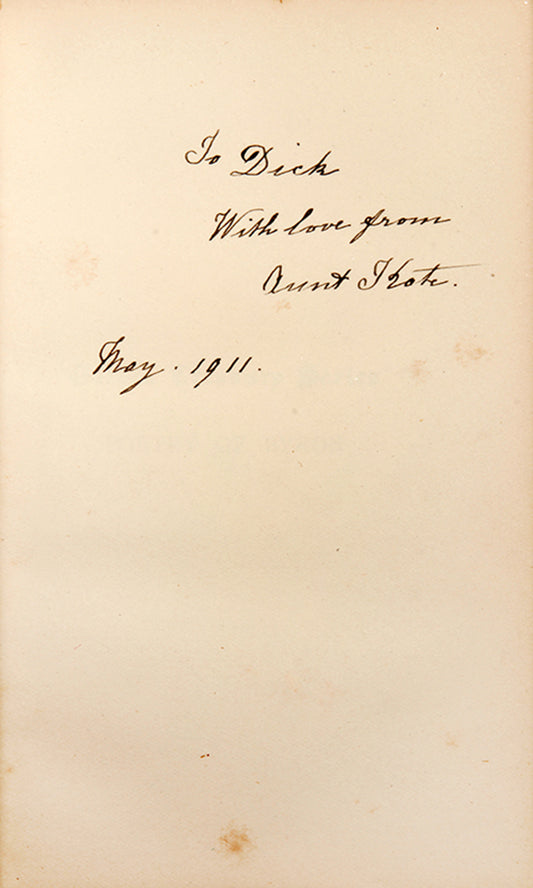 To Dick
With love from
Aunt Kate.
May. 1911.